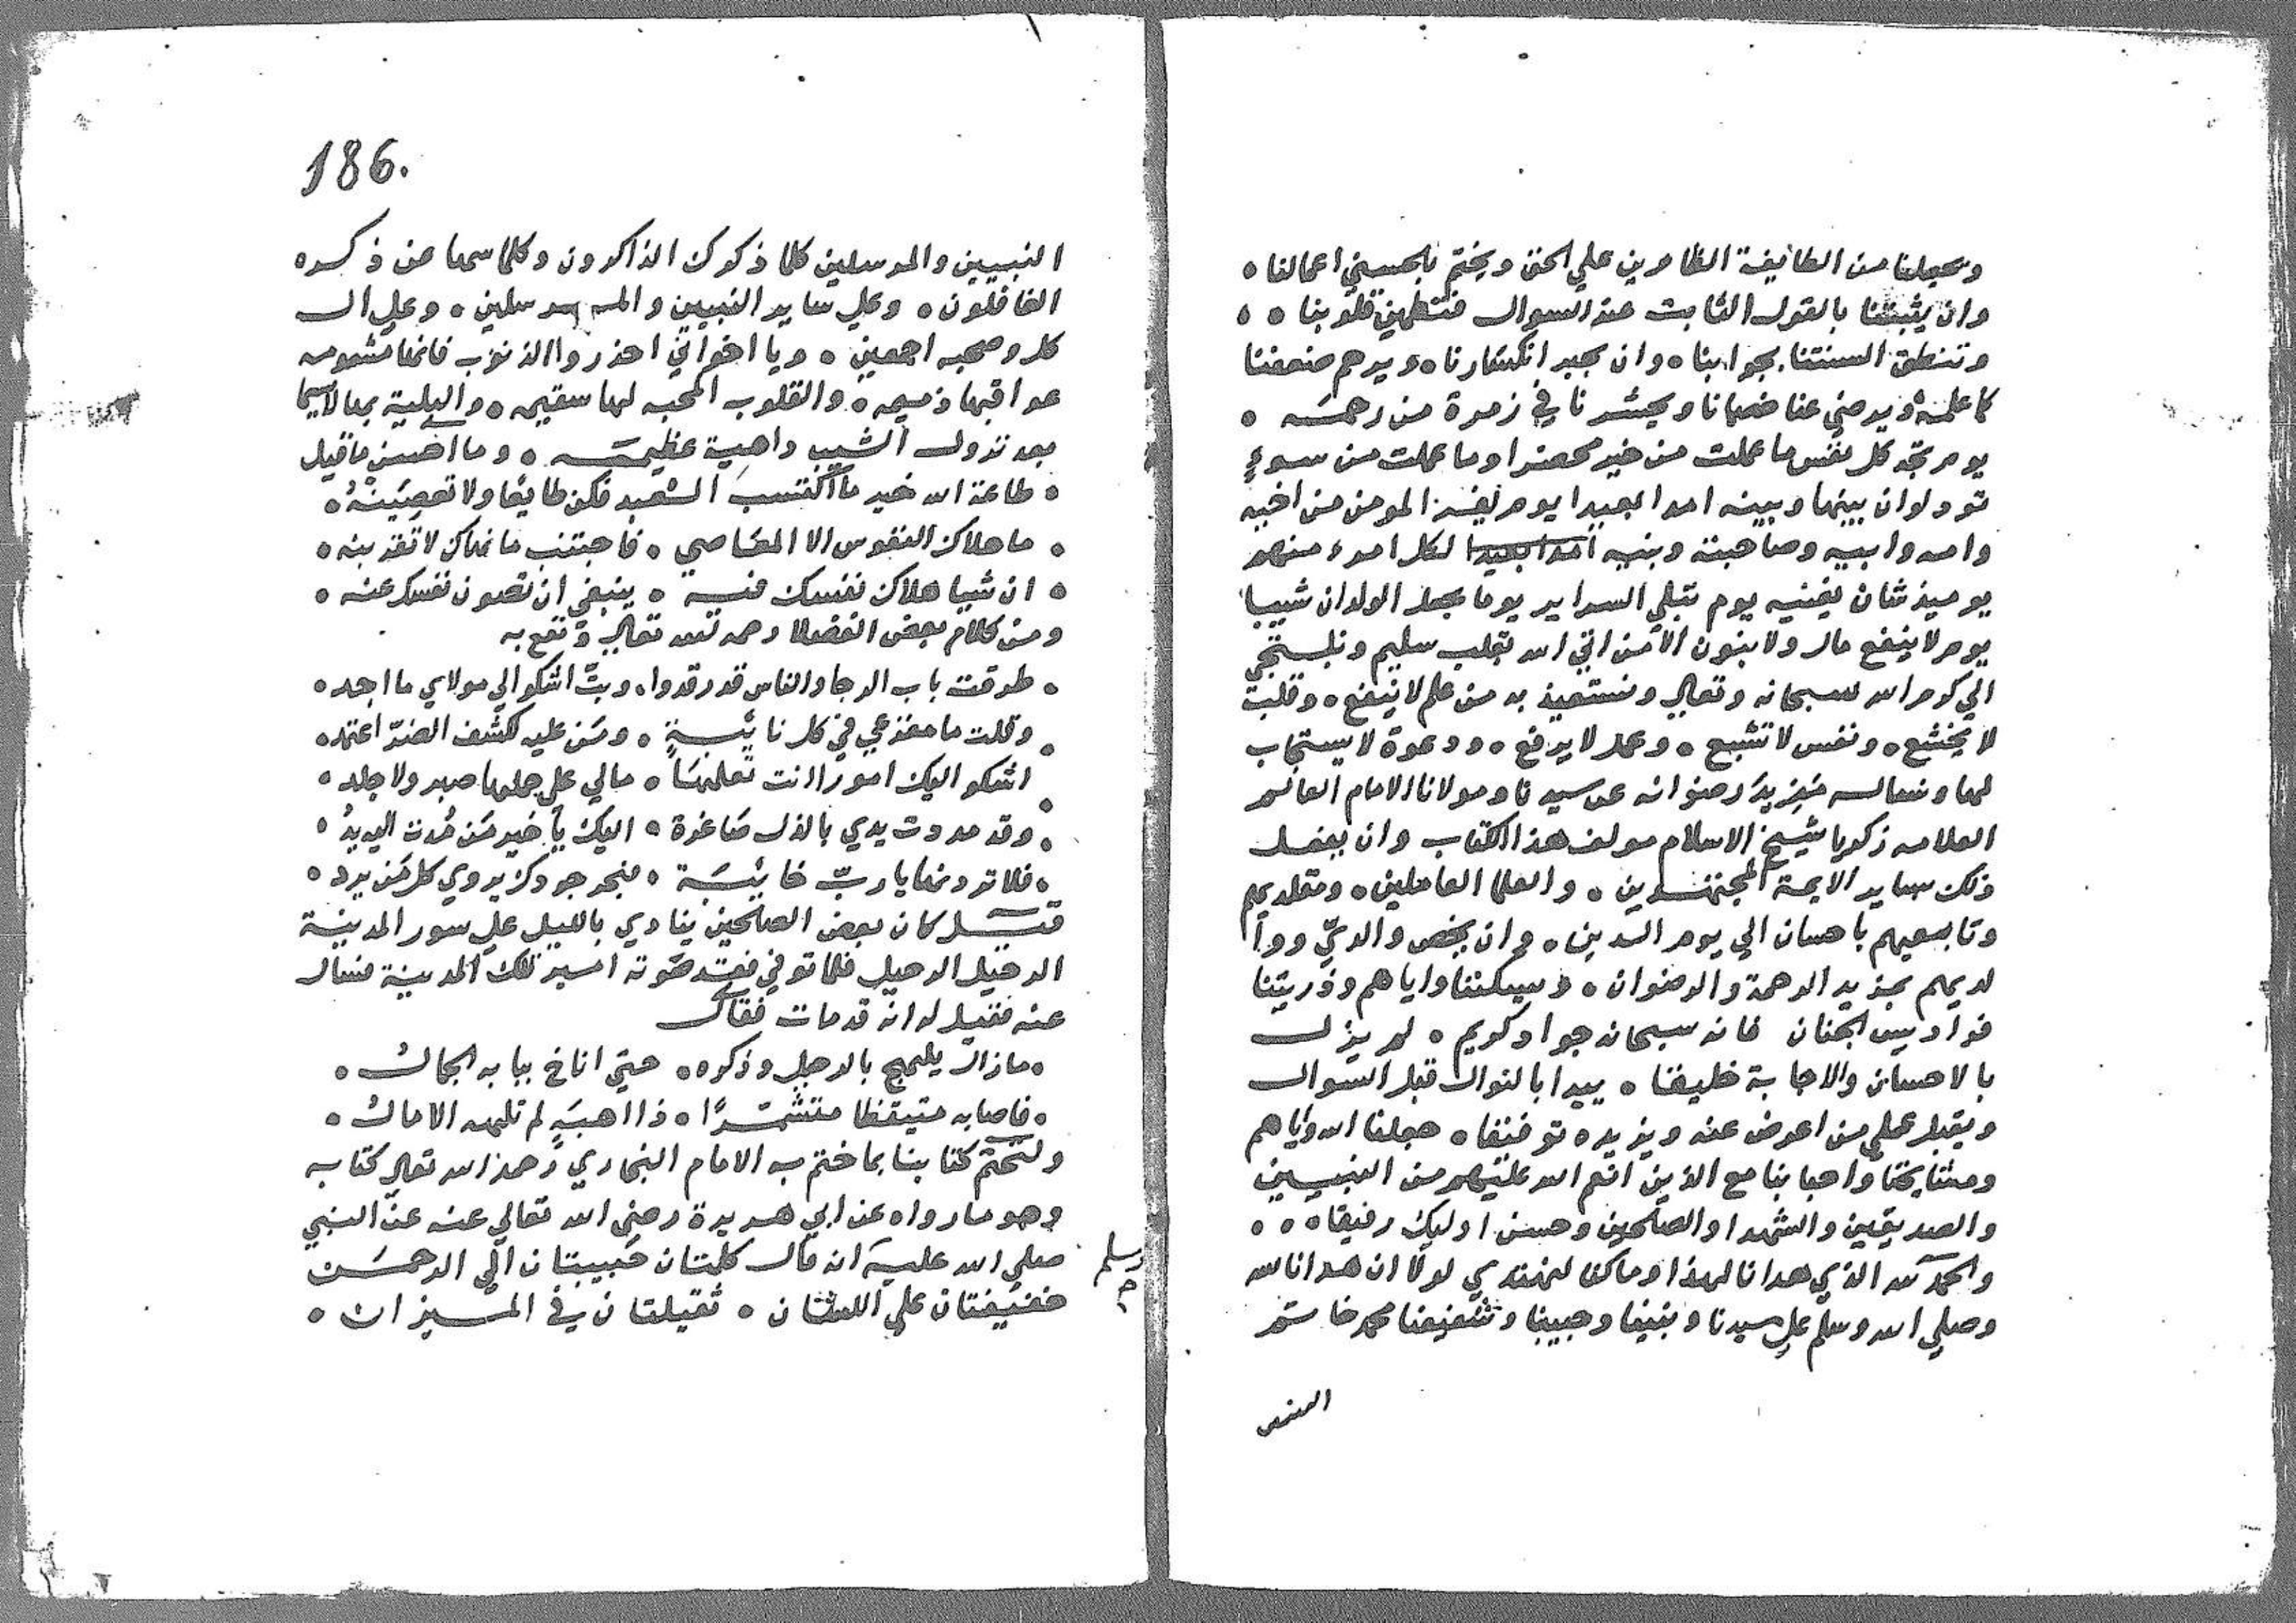 ويجعلنا من الطايفة الظاهرين علي الحق ويختم بالحسني اعمالنا ه
وان يثبتنا بالقول الثابت عند السوال فتطمين قلوبنا ه ه
وتنطق السنتنا بجوابنا ه وان يجبر انكسارنا ه ويرحم ضعفنا
كما علمه ويرضي عنا خصمانا ويحشرنا في زمرة من رحمه ه
يوم تجد كل نفس ما عملت من خير محضرا وما عملت من سوءٍ
تود لو ان بينها وبينه امدا بعيدا يوم يفر المومن من اخيه
وامه وابيه وصاحبته وبنيه امدا بعيدا لكل امرء منهم
يوميذ شان يغنيه يوم تبلي السراير يوما يجعل الولدان شيبا
يوم لا ينفع مال ولا بنون الا من اتي الله بقلب سليم ونلتجي
الي كرم الله سبحانه وتعالي ونستعيذ به من علم لا ينفع ه وقلب
لا يخشع ه ونفس لا تشبع ه وعمل لا يرفع ه ودعوة لا يستجاب
لها ونساله مَزِيدَ رضوانه عن سيدنا ومولانا الامام العالم
العلامه زكريا شيخ الاسلام مولف هذا الكتاب وان يعم
ذلك ساير الايمة المجتهدين ه والعلما العاملين ه ومقلديهم
وتابعيهم باحسان الي يوم الدين ه وان يخص والديّ ووا
لديهم بمزيد الرحمة والرضوان ه ويسكننا واياهم وذريتنا
فراديس الجنان فانه سبحانه جواد كريم ه لم يزل
بالاحسان والاجابة خليقا ه يبدا بالنوال قبل السوال
ويقبل علي من اعرض عنه ويزيده توفيقا ه جعلنا الله واياهم
ومشايخنا واحبابنا مع الذين انعم الله عليهم من النبيين
والصديقين والشهدا والصالحين وحسن اوليك رفيقا ه ه ه
والحمد لله الذي هدانا لهذا وما كنا لنهتدي لولا ان هدانا الله
وصلي الله وسلم علي سيدنا ونبينا وحبيبنا وشفيعنا محمد خاتم
186.
النبيين والمرسلين كلما ذكرك الذاكرون وكلما سها عن ذكره
الغافلون ه وعلي ساير النبيين والمرسلين ه وعلي ال
كل وصحبه اجمعين ه ويا اخواني احذروا الذنوب فانها مشومه
عواقبها ذميمه ه والقلوب المحبه لها سقيمه ه والبلية بها لاسيما
بعد نزول الشيب داهية عظيمه ه وما احسن ما قيل
ه طاعة الله خير ما اكتسب العبد فكن طايعًا ولا تعصينهُ ه
ه ما هلاك النفوس الا المعاصي ه فاجتنب ما نهاك لا تقربنه ه
ه ان شيا هلاك نفسك فيه ه ينبغي ان تصون نفسك عنه ه
ومن كلام بعض الفضلا رحمه الله تعالي ونفع به
ه طرقت باب الرجا والناس قد رقدوا ه وبتّ اشكو الي مولاي ما اجد ه
ه وقلت ما مفزعي في كل نايبةٍ ه ومَن عليه لكشف الضرّ اعتمد ه
ه اشكو اليك امورا انت تعلمها ه مالي علي حملها صبر ولا جلد ه
ه وقد مددت يدي بالذل صاغرة ه اليك يا خير مَن مُدت اليه يدُ ه
ه فلا تردنها يا ربّ خايبة ه فبحر جودك يروي كل مَن يرد ه
قيل كان بعض الصالحين ينادي بالليل علي سور المدينة
الرحيل الرحيل فلما توفي فقد صوته امير تلك المدينة فسال
عنه فقيل له انه قد مات فقال
ه ما زال يلهج بالرحيل وذكره ه حتي اناخ ببابه الجمالُ ه
ه فاصابه متيقظا متشمرًا ه ذا اهبةٍ لم تلهه الامالُ ه
ولنختم كتابنا بما ختم به الامام البخاري رحمه الله تعالي كتابه
وهو ما رواه عن ابي هريرة رضي الله تعالي عنه عن النبي
صلي الله عليه انه قال كلمتان حبيبتان الي الرحمن
وسلم
خفيفتان علي اللسان ه ثقيلتان في الميزان ه